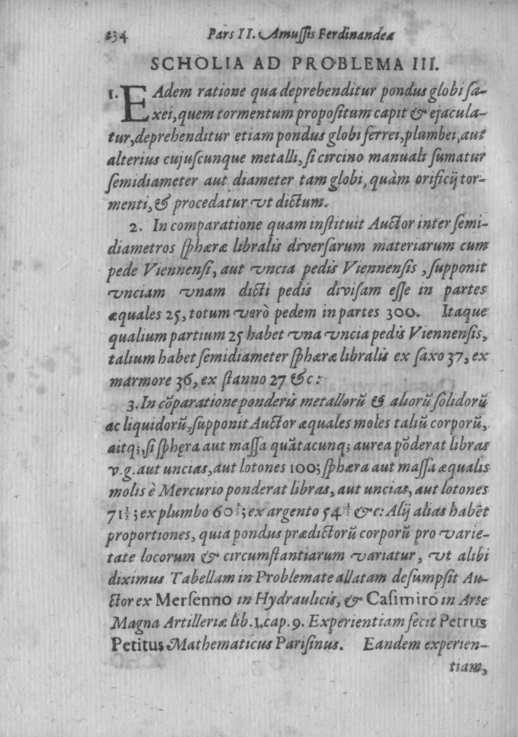 234 Pars II. Amussis Ferdinandeæ
SCHOLIA AD PROBLEMA III.
1. EAdem ratione qua deprehenditur pondus globi sa-
xei, quem tormentum propositum capit & ejacula-
tur, deprehenditur etiam pondus globi ferrei, plumbei, aut
alterius cujuscunque metalli, si circino manuali sumatur
semidiameter aut diameter tam globi, quàm orificij tor-
menti, & procedatur vt dictum.
2. In comparatione quam instituit Auctor inter semi-
diametros sphæræ libralis diversarum materiarum cum
pede Viennensi, aut vncia pedis Viennensis, supponit
vnciam vnam dicti pedis divisam esse in partes
æquales 25, totum verò pedem in partes 300. Itaque
qualium partium 25 habet vna vncia pedis Viennensis,
talium habet semidiameter sphæræ libralis ex saxo 37, ex
marmore 36, ex stanno 27 &c:
3. In cōparatione ponderis metallorũ & aliorũ solidorũ
ac liquidorũ, supponit Auctor æquales moles taliũ corporũ,
aitq; si sphęra aut massa quātacunq; aurea pōderat libras
v.g. aut uncias, aut lotones 100; sphæra aut massa æqualis
molis è Mercurio ponderat libras, aut uncias, aut lotones
71½; ex plumbo 60½; ex argento 54½ &c: Alij alias habēt
proportiones, quia pondus prædictorũ corporũ pro varie-
tate locorum & circumstantiarum variatur, vt alibi
diximus Tabellam in Problemate allatam desumpsit Au-
ctor ex Mersenno in Hydraulicis, & Casimiro in Arte
Magna Artilleriæ lib. 1. cap. 9. Experientiam fecit Petrus
Petitus Mathematicus Parisinus. Eandem experien-
tiam,